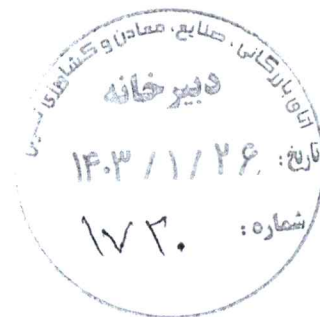 اتاق بازرگانی، صنایع، معادن و کشاورزی
دبیرخانه
تاریخ: ۱۴۰۳/۱/۲۶
شماره: ۱۷۲۰